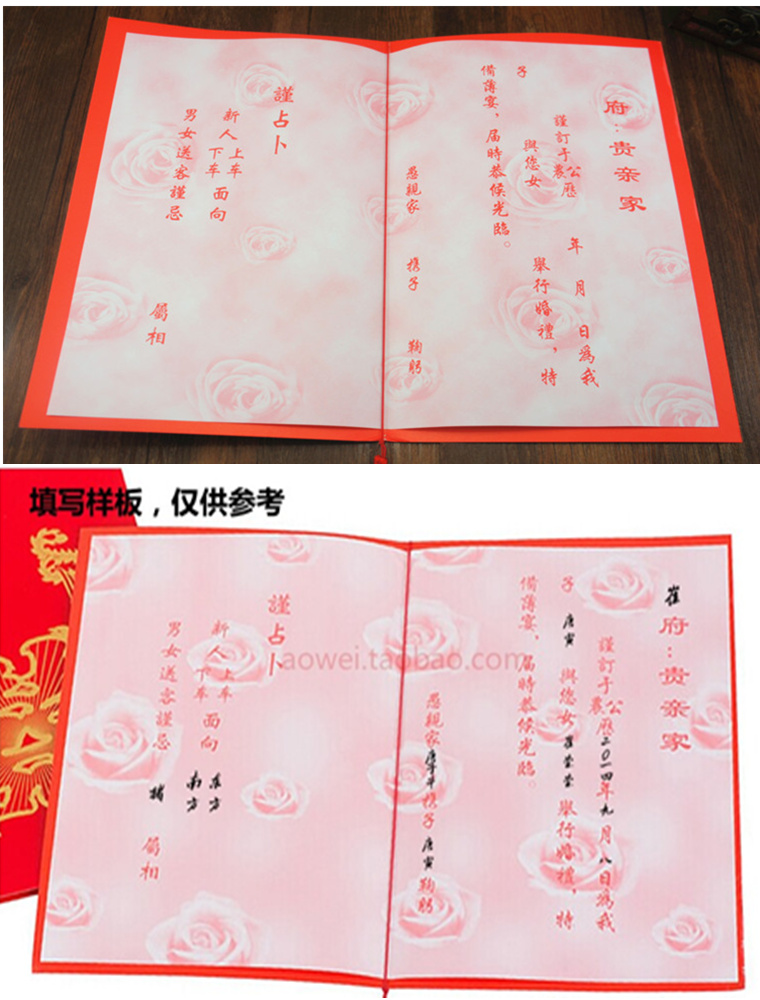 府:贵亲家
謹訂于公農曆 年 月 日爲我
子 與您女 舉行婚禮,特
備薄宴,届時恭候光臨。
愚親家 携子 鞠躬
謹占卜
新人上車下車面向
男女送客謹忌 屬相
填写样板,仅供参考
崔府:贵亲家
謹訂于公農曆二〇一四年九月八日爲我
子唐寅與您女崔莹莹舉行婚禮,特
備薄宴,届時恭候光臨。
愚親家 携子唐寅鞠躬
謹占卜
新人上車下車面向东方南方
男女送客謹忌猪屬相
aowei.taobao.com